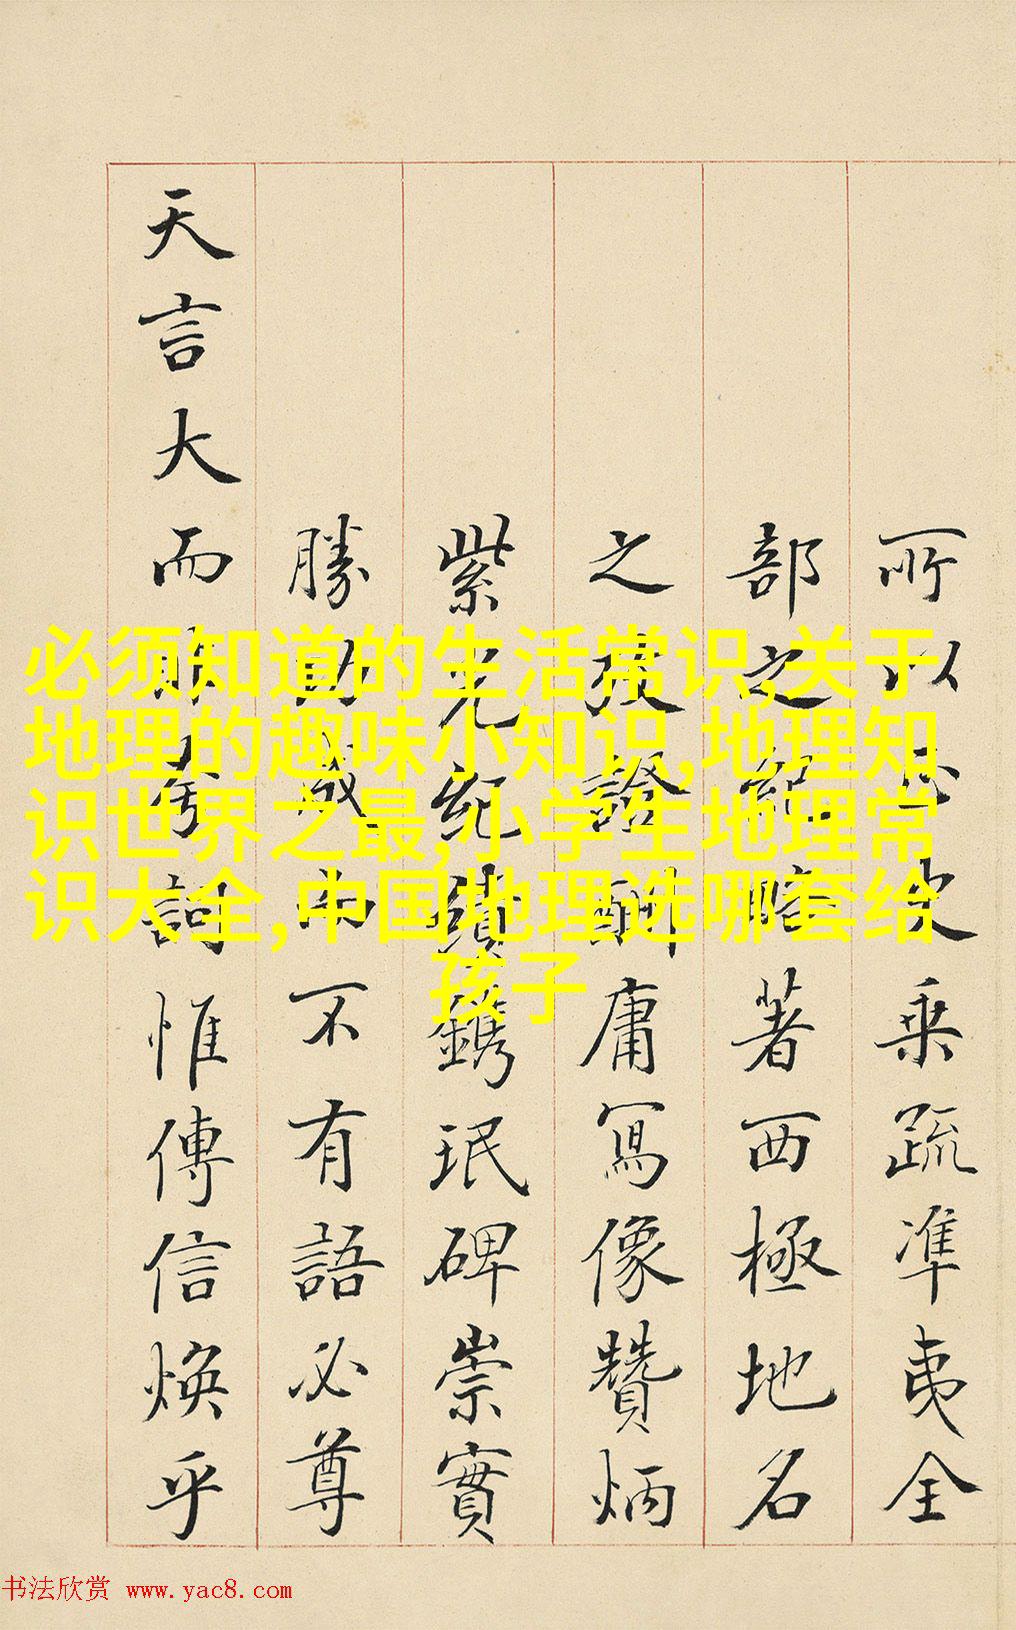 所以史乘疏準夷全
部之略著西極地名
之證酬庸寫像贊炳
紫光紀績鐫珉碑崇實
勝成不有語必尊
天言大而夸詞惟傳信煥乎
必须知道的生活常识,关于
地理的趣味小知识,地理知
识世界之最,小学生地理常
识大全,中国地理选哪套给
孩子
书法欣赏 www.yac8.com